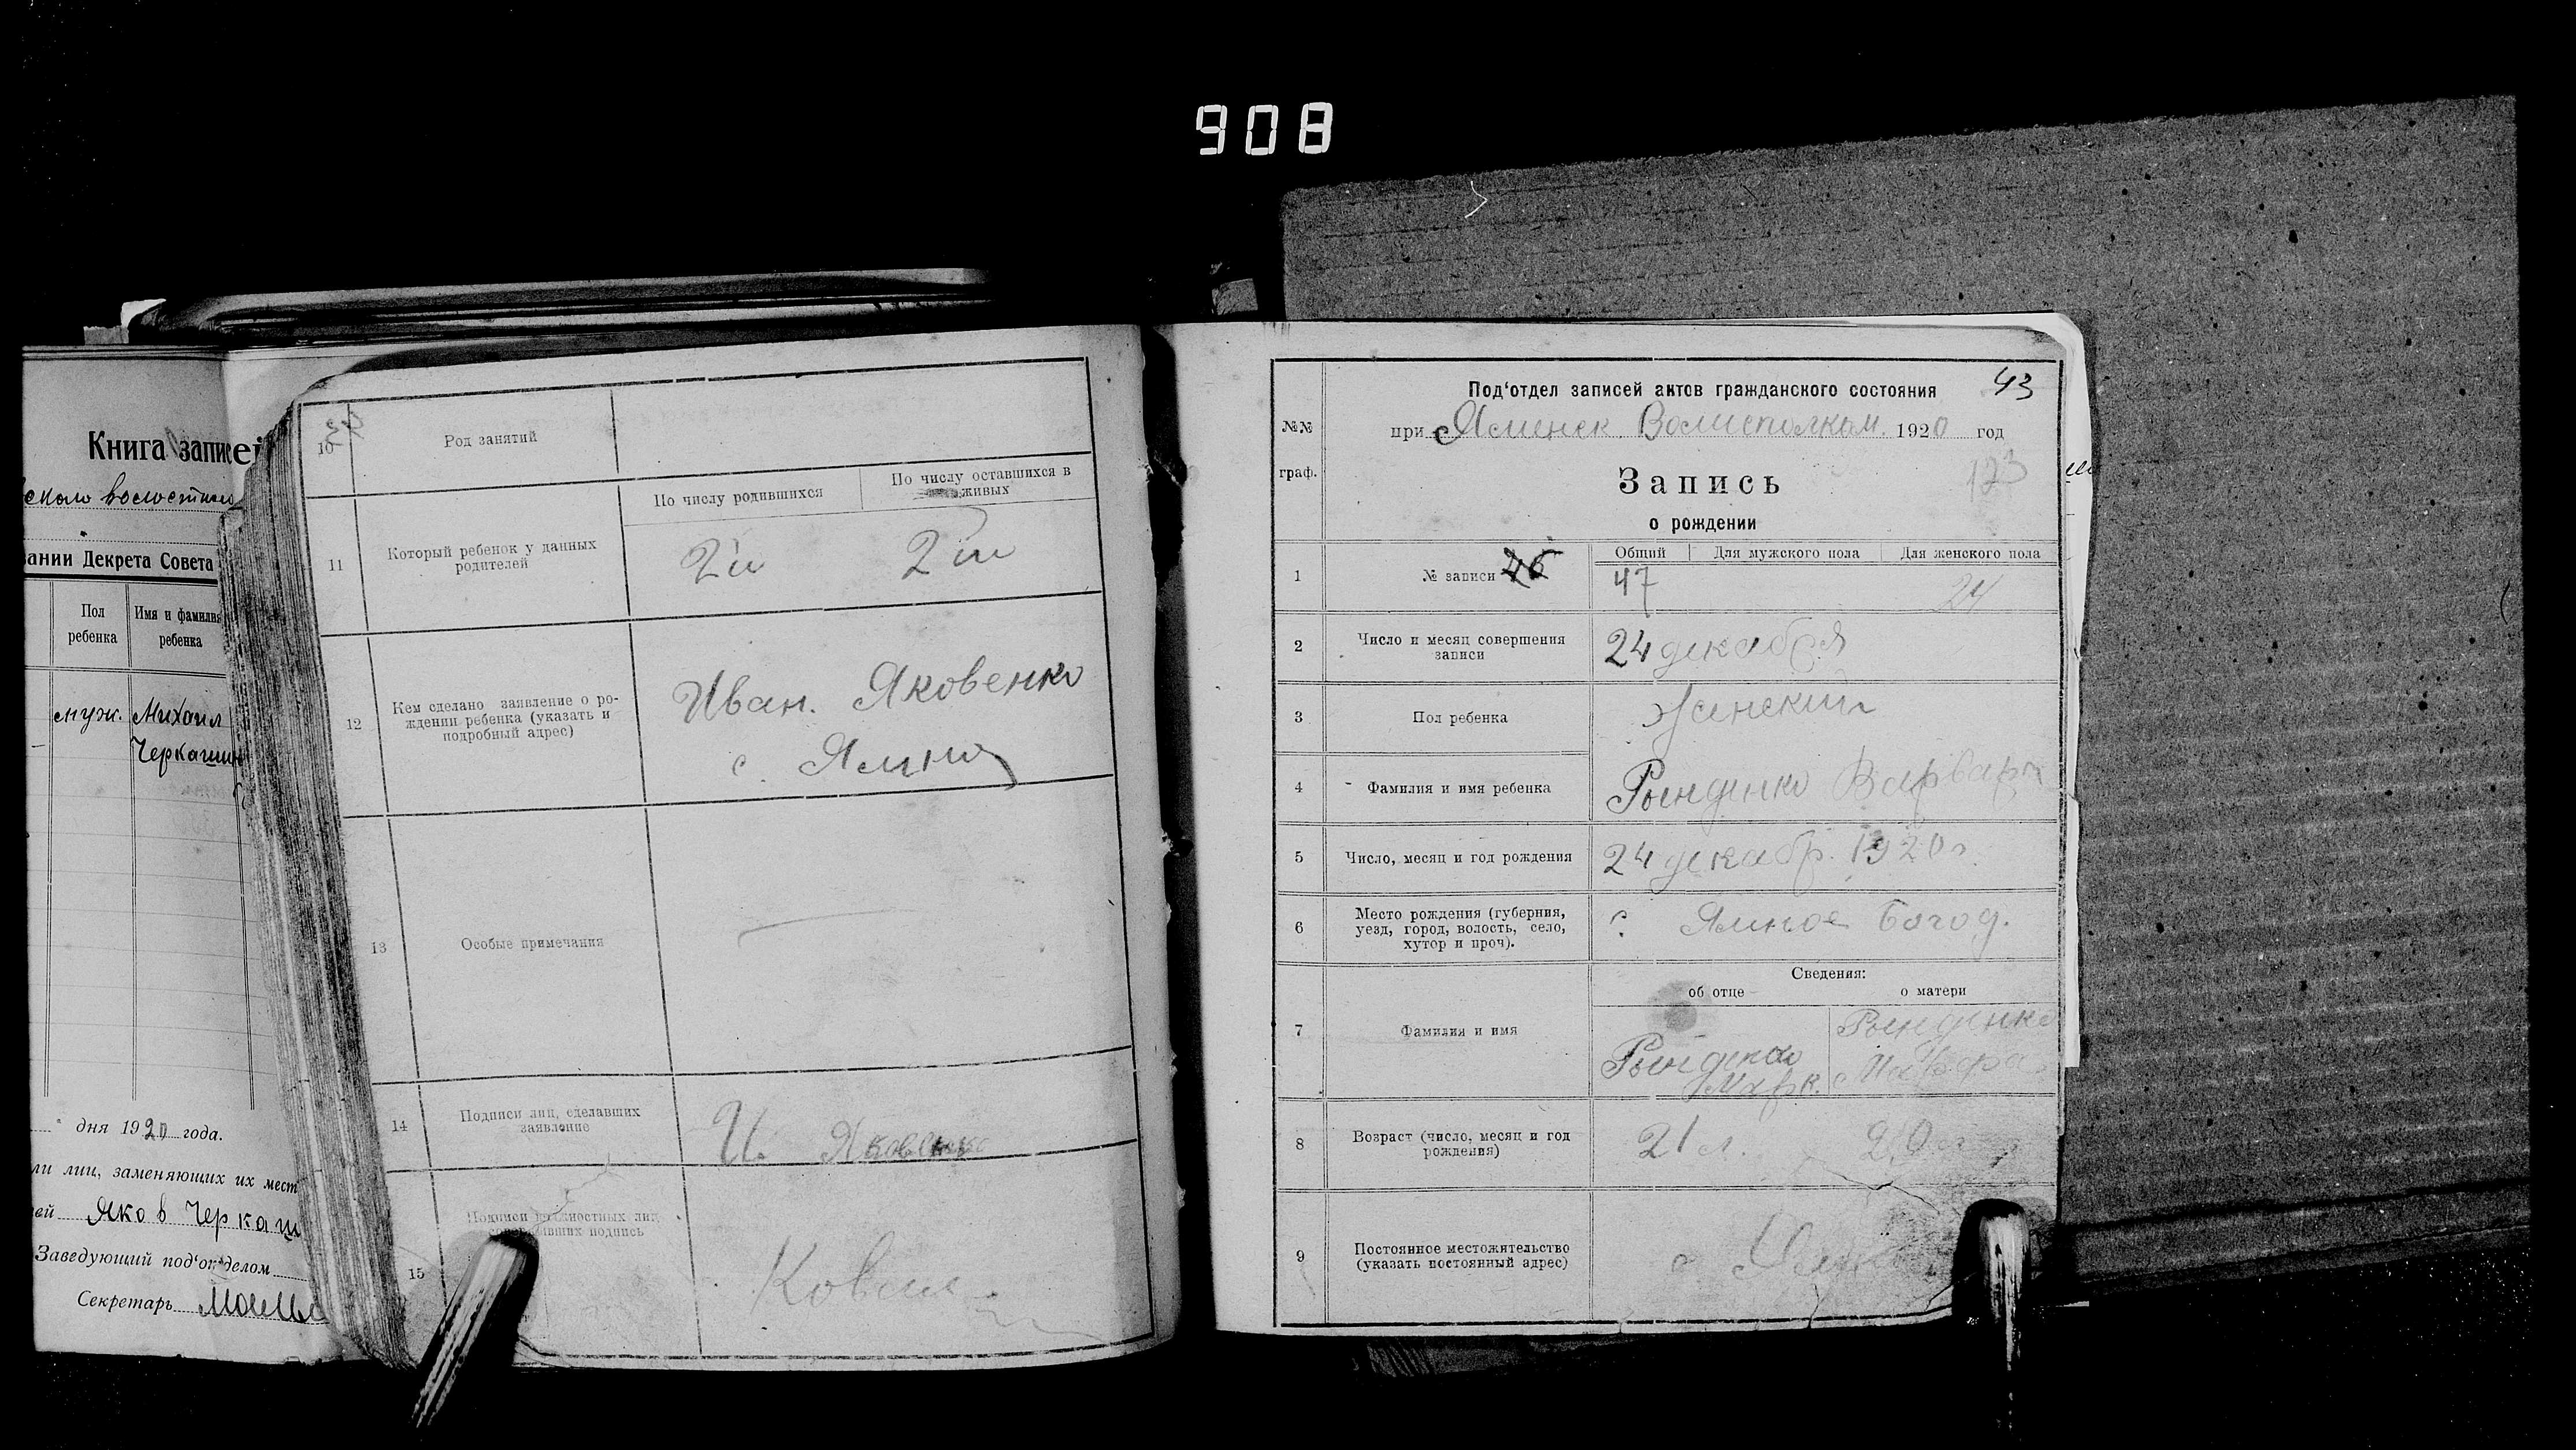 908
Книга записей
ании Декрета Совета
Пол
ребенка
Имя и фамилия
ребенка
муж.
Михаил
Черкашин
дня 1920 года.
ли лиц, заменяющих их мест
Яков Черкаш
Заведующий под'отделом
Секретарь
10
Род занятий
11
Который ребенок у данных
родителей
По числу родившихся
По числу оставшихся в
живых
2й
2й
12
Кем сделано заявление о ро-
ждении ребенка (указать и
подробный адрес)
Иван. Яковенко
с. Ямно
13
Особые примечания
14
Подписи лиц, сделавших
заявление
И. Яковенко
15
Подписи должностных лиц,
совершивших подпись
№№
граф.
Под'отдел записей актов гражданского состояния
43
при Ямненск Волисполком. 1920 год
123
Запись
о рождении
1
№ записи 46
Общий
Для мужского пола
Для женского пола
47
24
2
Число и месяц совершения
записи
24 декабря
3
Пол ребенка
женский
4
Фамилия и имя ребенка
Варвара
5
Число, месяц и год рождения
24 декабр. 1920 г.
6
Место рождения (губерния,
уезд, город, волость, село,
хутор и проч.).
с. Ямное Богод.
Сведения:
об отце
о матери
7
Фамилия и имя
Марк.
8
Возраст (число, месяц и год
рождения)
21 л.
20 л
9
Постоянное местожительство
(указать постоянный адрес)
с.